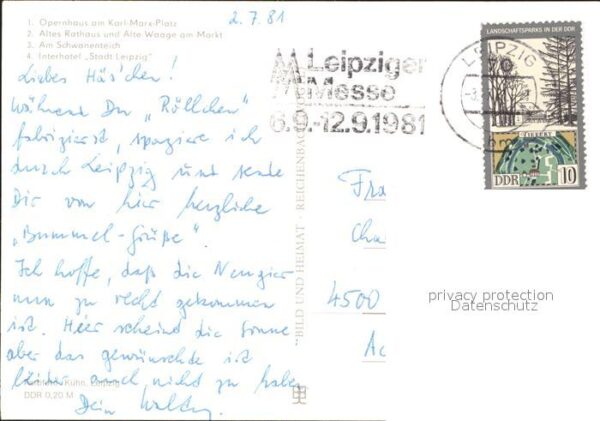 1. Opernhaus am Karl-Marx-Platz
2. Altes Rathaus und Alte Waage am Markt
3. Am Schwanenteich
4. Interhotel „Stadt Leipzig"
2.7.81
Liebes Häs'chen!
Während Du „Röllchen"
fabrizierst, spaziere ich
durch Leipzig und sende
Dir von hier herzliche
„Bummel-Grüße"
Ich hoffe, daß die Neugier
nun zu recht gekommen
ist. Hier scheint die Sonne
aber das gewünschte ist
leider auch nicht zu habe
Dein
Kuhn, Leipzig
DDR 0,20 M
BILD UND HEIMAT · REICHENBACH
MM Leipziger
Messe
6.9.-12.9.1981
LEIPZIG
LANDSCHAFTSPARKS IN DER DDR
DDR 10
Fra
Cha
4500
Ac
privacy protection
Datenschutz